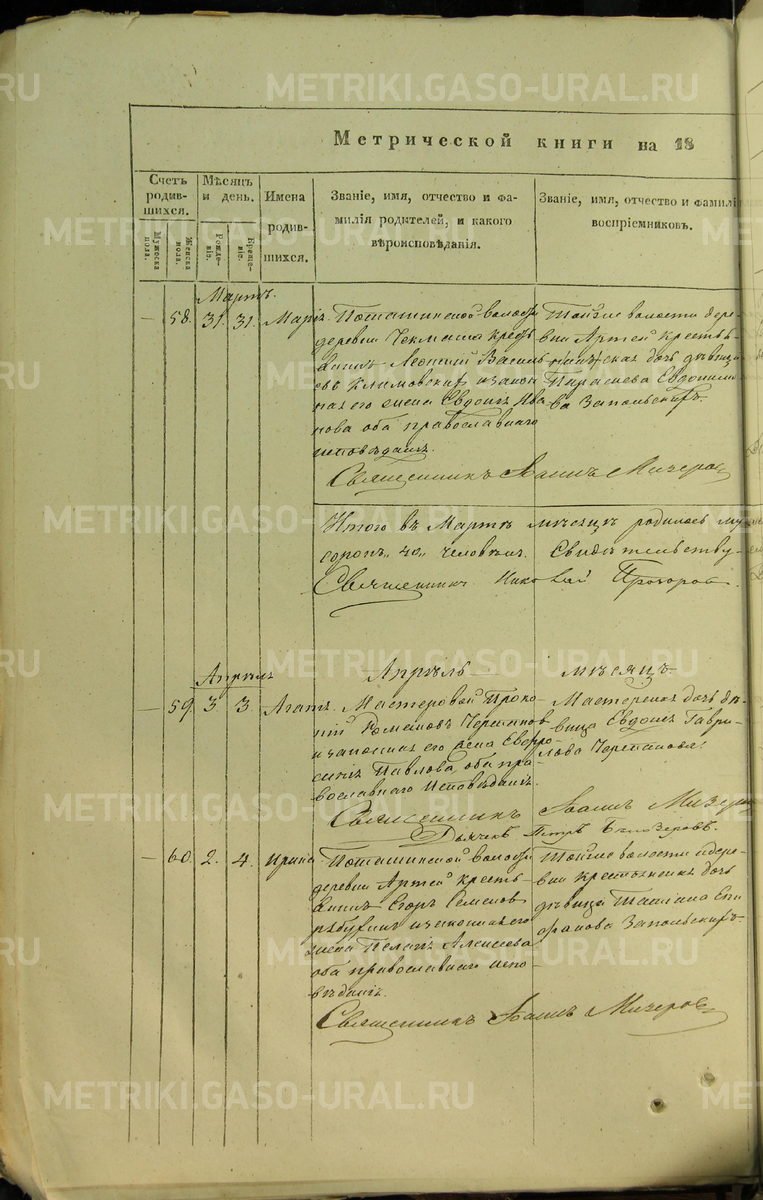 METRIKI.GASO-URAL.RU
Метрической книги на 18
Счетъ родив-шихся.
Мужеска пола.
Женска пола.
Мѣсяцъ и день.
Рожде-ніе.
Креще-ніе.
Имена родив-шихся.
Званіе, имя, отчество и фа-
милія родителей, и какого
вѣроисповѣданія.
Званіе, имя, отчество и фамилі
воспріемниковъ.
Мартъ.
58. 31. 31. Марія.
Поташинской волости
деревни Чекмаша кресть-
янинъ Леонтій Василь
евъ Климовских и закон
ная его жена Евдокія Ива
нова оба православнаго
исповѣданія.
Тойже волости дере-
вни Артей крестья
дочь дѣвица
Параскева Евдокимо
ва Запольскихъ.
Священникъ Іоаннъ Мичеров
Итого въ Мартѣ мѣсяцѣ родилось
сорокъ „40„ человѣкъ. Свидѣтельству-
Священникъ Николай Прозоров
Апрѣль
Апрѣль мѣсяцъ
59. 3 3. Агаѳія.
Мастеровой Проко-
пій Романовъ Черепанов
и законная его жена Евфро-
синія Павлова, оба пра-
вославнаго Исповѣданія.
дочь дѣ-
вица Евдокія Гаври-
лова Черепанова.
Священникъ Іоаннъ Мичеров
Дьячекъ Петръ Бѣлозеровъ.
60. 2. 4. Ирина
Поташинской волости
деревни Артей кресть-
янинъ Егоръ Семенов
и законная его
жена Пелагія Алексѣева
оба православнаго испо-
вѣданія.
Тойже волости и дере-
вни крестьянская дочь
дѣвица Татіана Епи
фанова Запольскихъ
Священникъ Іоаннъ Мичеров